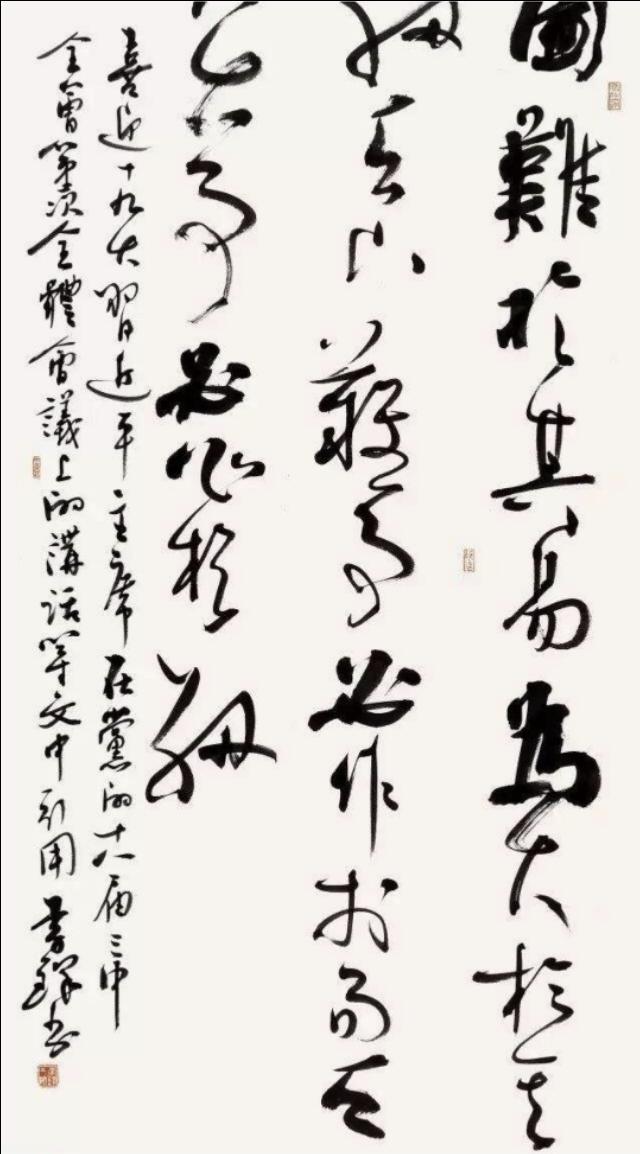 圖難於其易為大於其
細天下難事必作於易天
下大事必作於細
喜迎十九大習近平主席在黨的十八屆三中
全會第次全體會議上的講話等文中引用